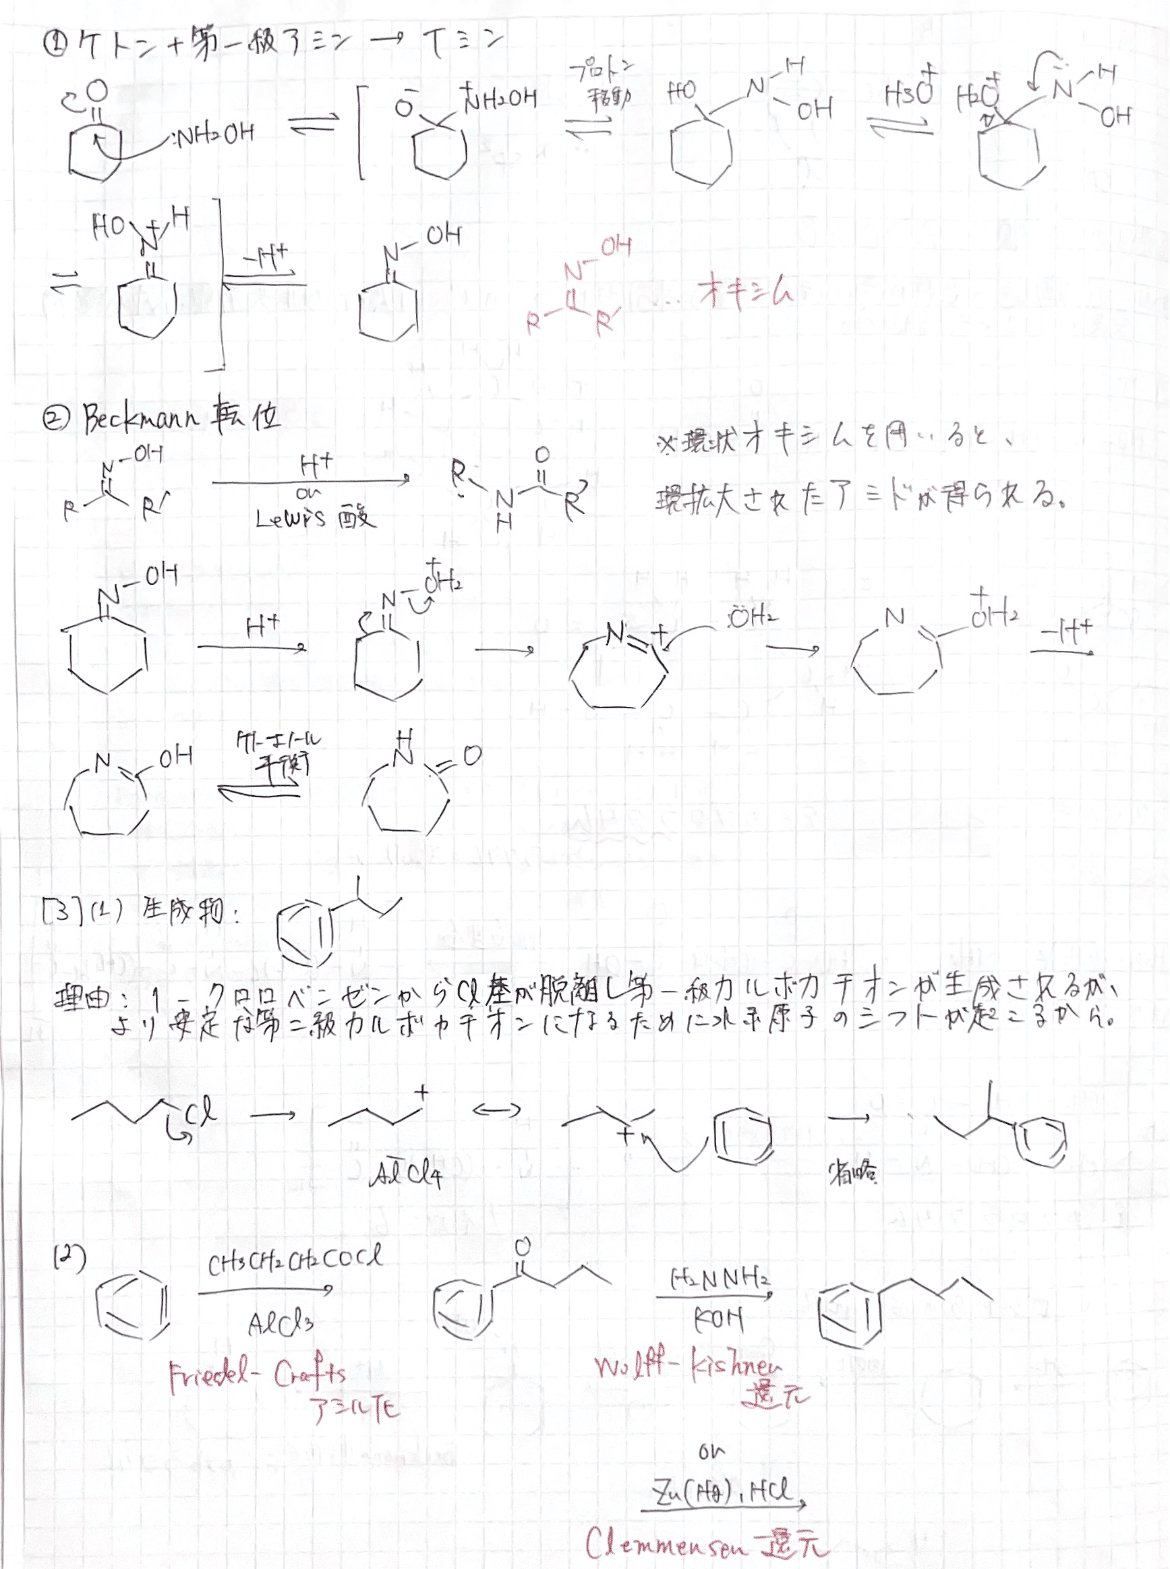 ① ケトン + 第一級アミン → イミン
O :NH2OH ⇌ [ O⁻ ⁺NH2OH ⇌ プロトン移動 HO N H OH ⇌ H3O⁺ H2O⁺ N̈ H OH
⇌ HO N⁺ H ] ⇌ -H⁺ N-OH
N-OH R R' … オキシム
② Beckmann 転位
N-OH R R' → H⁺ or Lewis 酸 R N H O R'
※環状オキシムを用いると、
環拡大されたアミドが得られる。
N-OH → H⁺ N-O⁺H2 → N + :ÖH2 → N O⁺H2 → -H⁺
N OH ⇌ ケト-エノール平衡 H N O
[3] (1) 生成物:
理由: 1-クロロベンゼンからCl基が脱離し第一級カルボカチオンが生成されるが、
より安定な第二級カルボカチオンになるために水素原子のシフトが起こるから。
Cl → + AlCl4⁻ ↔ + → 省略
(2) CH3CH2CH2COCl → AlCl3 O H2NNH2 → KOH
Friedel-Crafts アシル化
Wolff-Kishner 還元
or
Zn(Hg), HCl
Clemmensen 還元